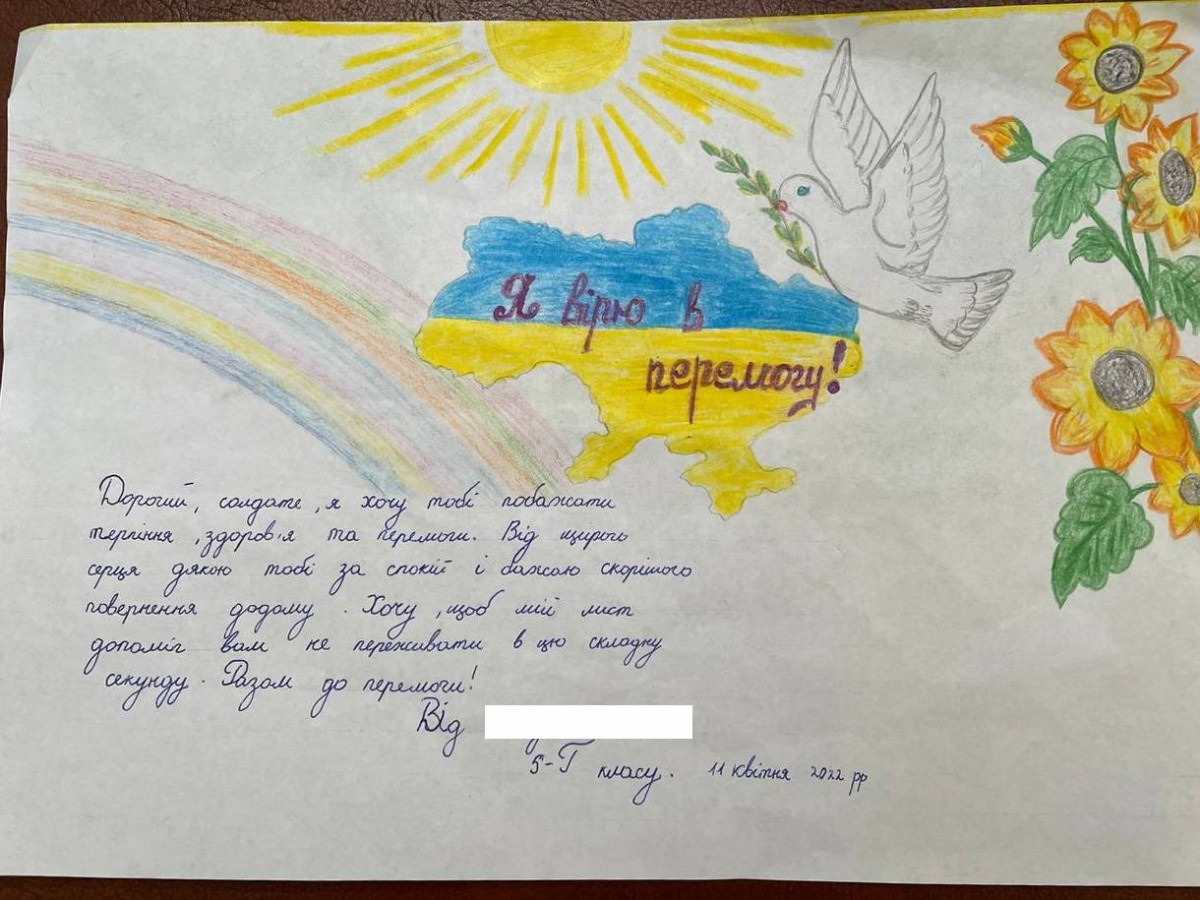 Я вірю в
перемогу!
Дорогий, солдате, я хочу тобі побажати
терпіння, здоров'я та перемоги. Від щирого
серця дякою тобі за спокій і бажаю скорішого
повернення додому. Хочу, щоб мій лист
допоміг вам не переживати в цю складну
секунду. Разом до перемоги!
Від
5-Г класу. 11 квітня 2022 рр